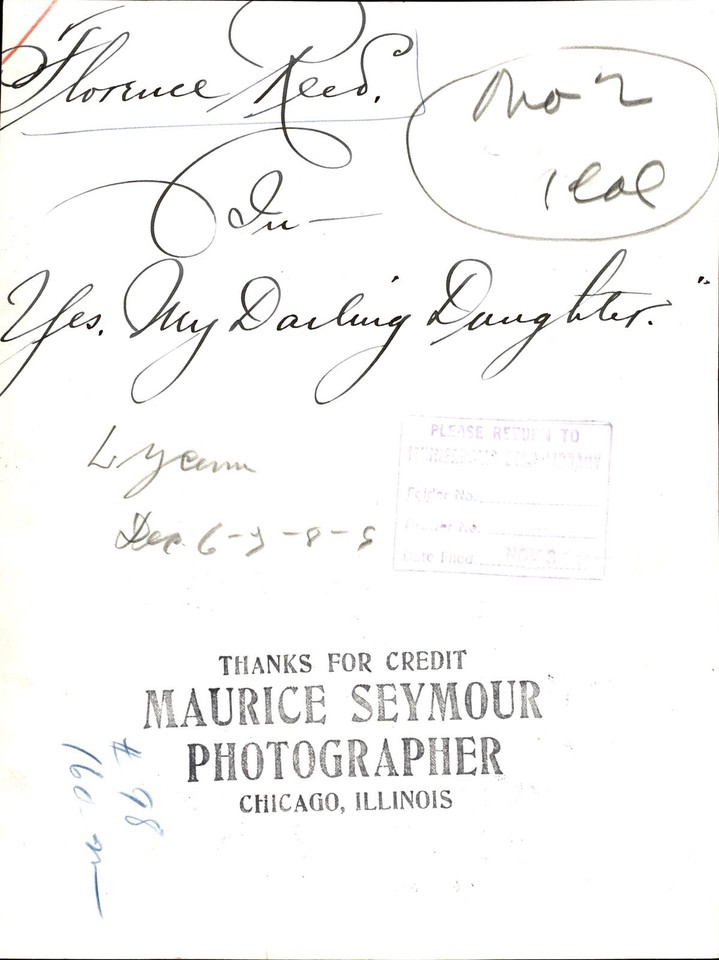 "Florence Reed.
In—
Yes, My Darling Daughter."
No 2
1 col
Lyceum
Dec. 6-7-8-9
PLEASE RETURN TO
Folder No.
Date Filed NOV 3
THANKS FOR CREDIT
MAURICE SEYMOUR
PHOTOGRAPHER
CHICAGO, ILLINOIS
# 98
160